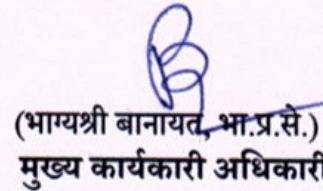 (भाग्यश्री बानायत, भा.प्र.से.)
मुख्य कार्यकारी अधिकारी